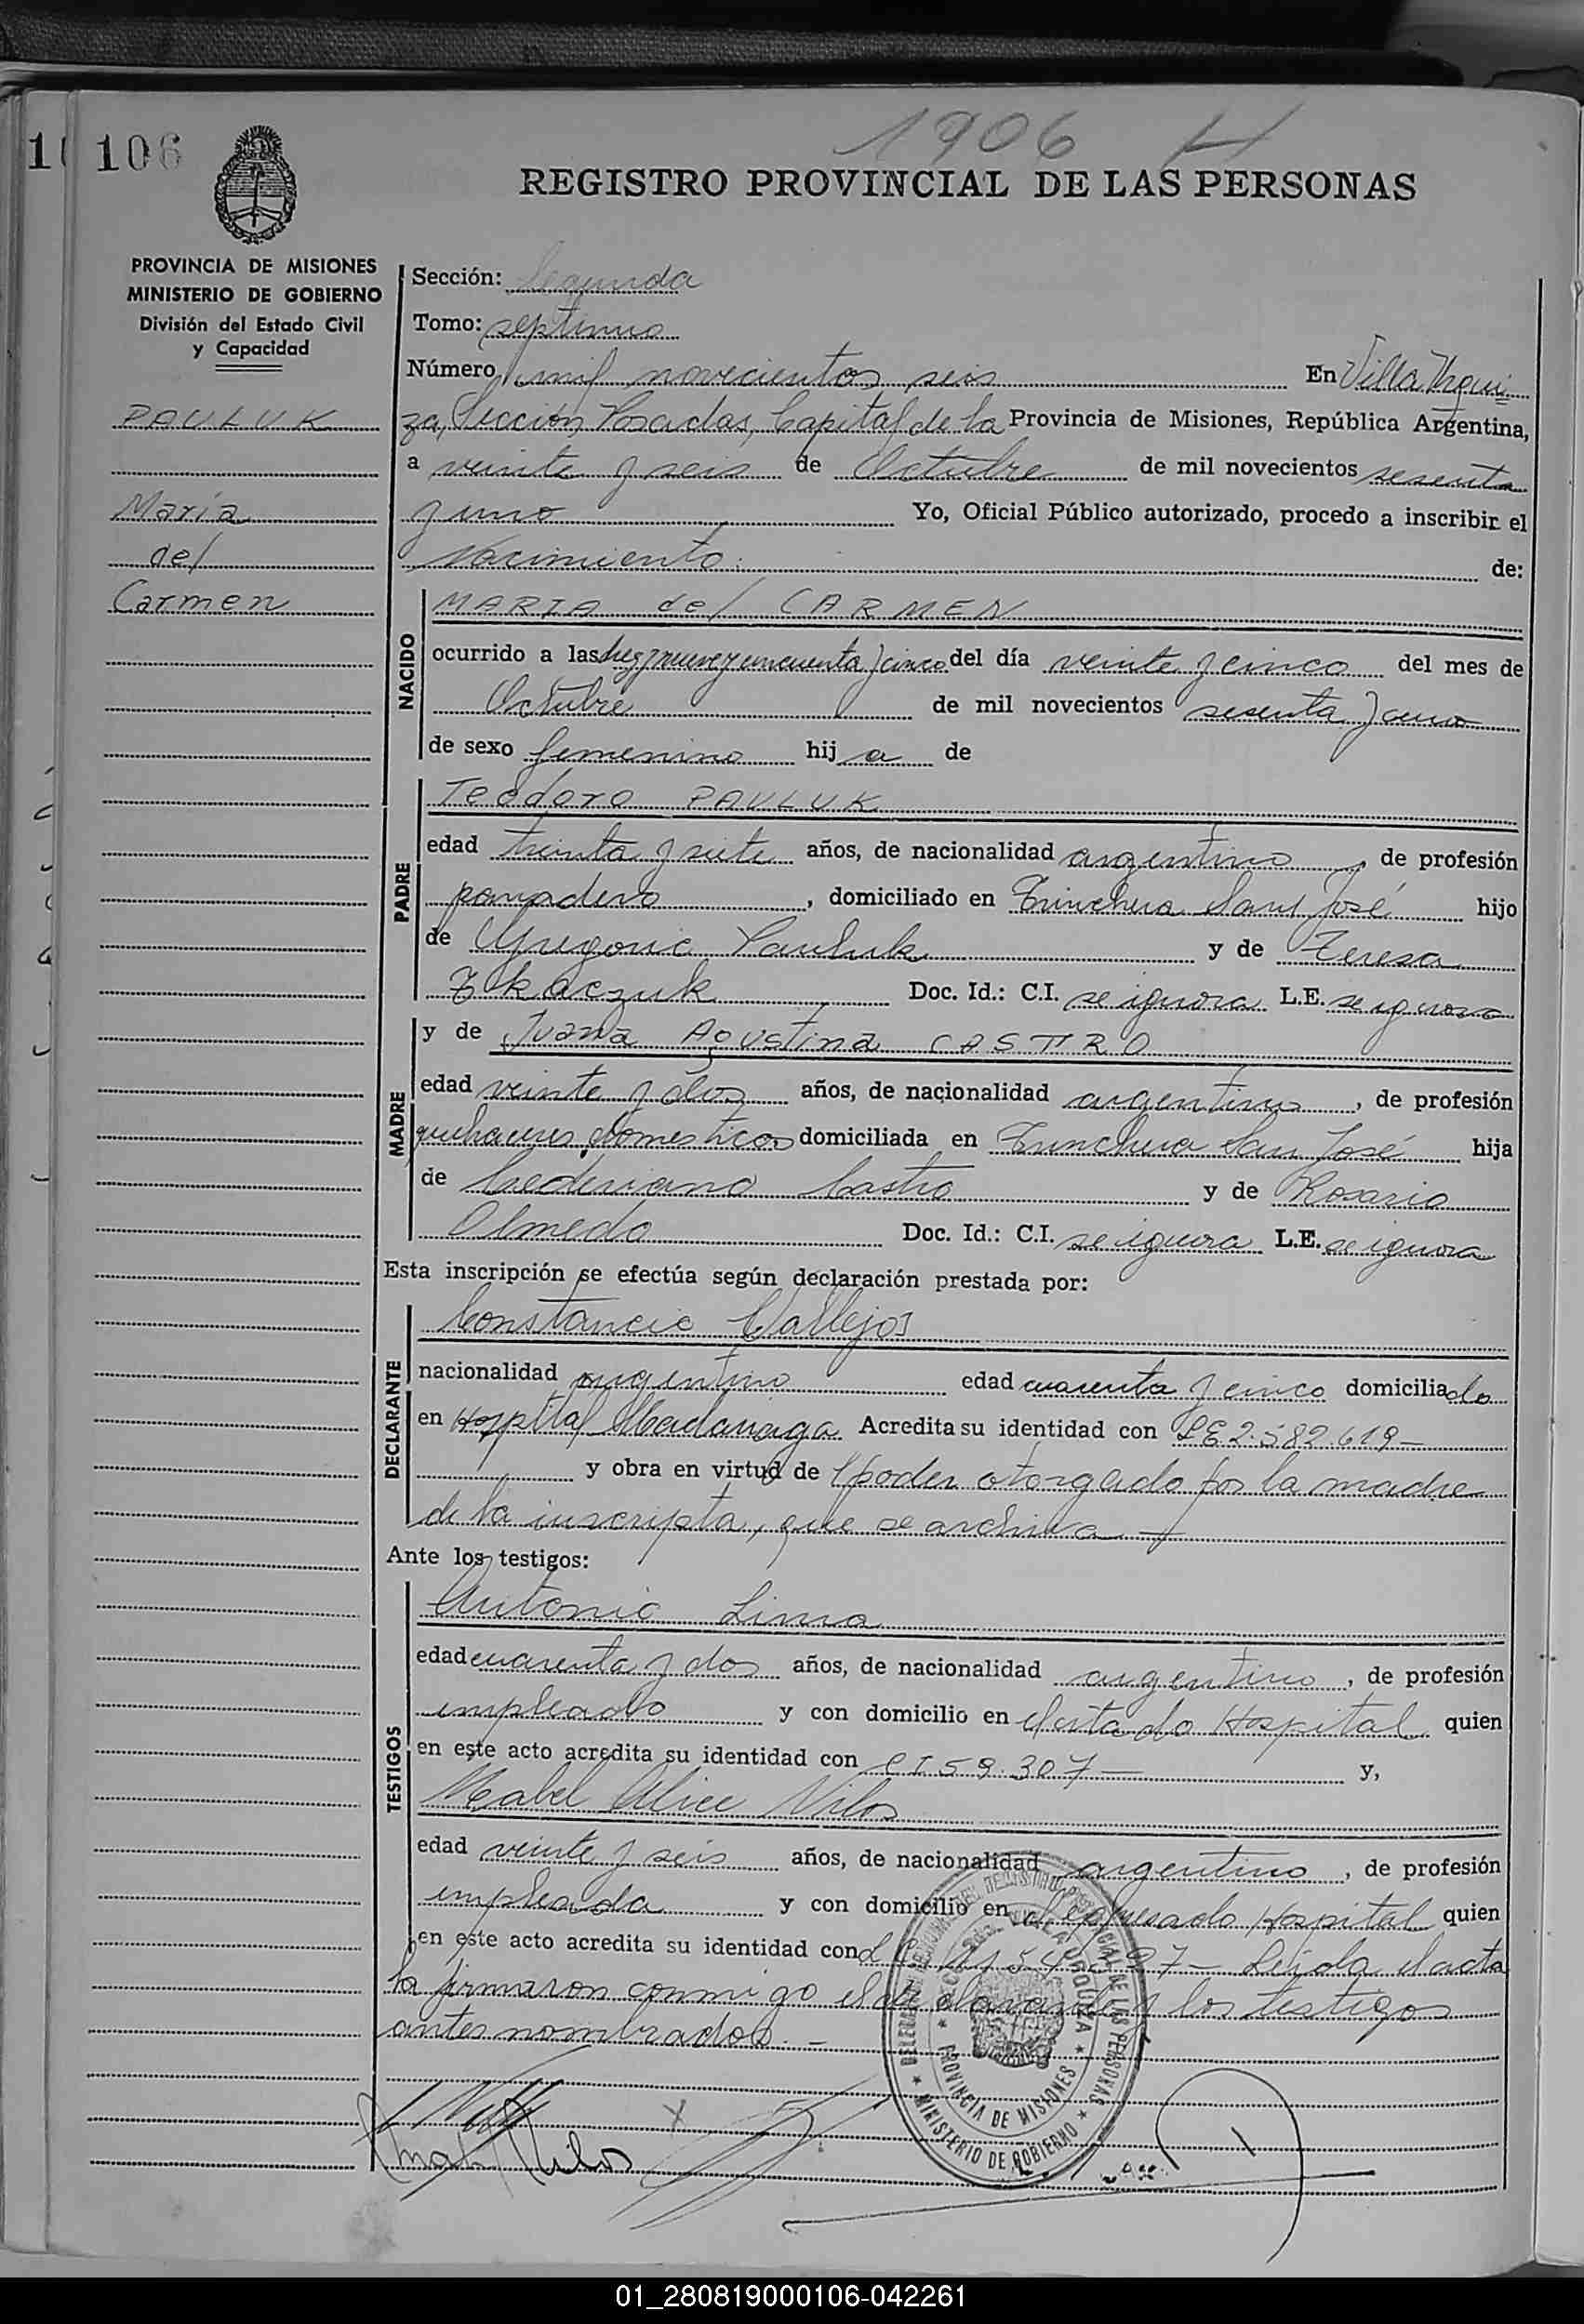 1906 H
106
REGISTRO PROVINCIAL DE LAS PERSONAS
PROVINCIA DE MISIONES
MINISTERIO DE GOBIERNO
División del Estado Civil
y Capacidad
PAULUK
María
del
Carmen
Sección: Segunda
Tomo: septimo
Número mil novecientos seis En Villa Urqui
za, Sección Posadas, Capital de la Provincia de Misiones, República Argentina,
a veinte y seis de Octubre de mil novecientos sesenta
y uno Yo, Oficial Público autorizado, procedo a inscribir el
Nacimiento de:
NACIDO
MARIA del CARMEN
ocurrido a las diez y nueve y cincuenta y cinco del día veinte y cinco del mes de
Octubre de mil novecientos sesenta y uno
de sexo femenino hija de
PADRE
Teodoro PAULUK
edad treinta y siete años, de nacionalidad argentino, de profesión
panadero, domiciliado en Trinchera San José hijo
de Gregorio Pauluk y de Teresa
Tkaczuk Doc. Id.: C.I. se ignora L.E. se ignora
MADRE
y de Juana Agustina CASTRO
edad veinte y dos años, de nacionalidad argentina, de profesión
quehaceres domesticos domiciliada en Trinchera San José hija
de Castro y de Rosario
Olmedo Doc. Id.: C.I. se ignora L.E. se ignora
Esta inscripción se efectúa según declaración prestada por:
DECLARANTE
Constancio Vallejos
nacionalidad argentino edad cuarenta y cinco domiciliado
en Hospital Madariaga Acredita su identidad con LE 2.582.619-
y obra en virtud de poder otorgado por la madre
de la inscripta, que se archiva
Ante los testigos:
TESTIGOS
Antonio Lima
edad cuarenta y dos años, de nacionalidad argentino, de profesión
empleado y con domicilio en el citado Hospital quien
en este acto acredita su identidad con CI 59.307- y,
Mabel Alice Vilos
edad veinte y seis años, de nacionalidad argentino, de profesión
empleada y con domicilio en el expresado Hospital quien
en este acto acredita su identidad con Leída el acta
la firmaron conmigo el declarante y los testigos
antes nombrados.-
PROVINCIA DE MISIONES
MINISTERIO DE GOBIERNO
01_280819000106-042261